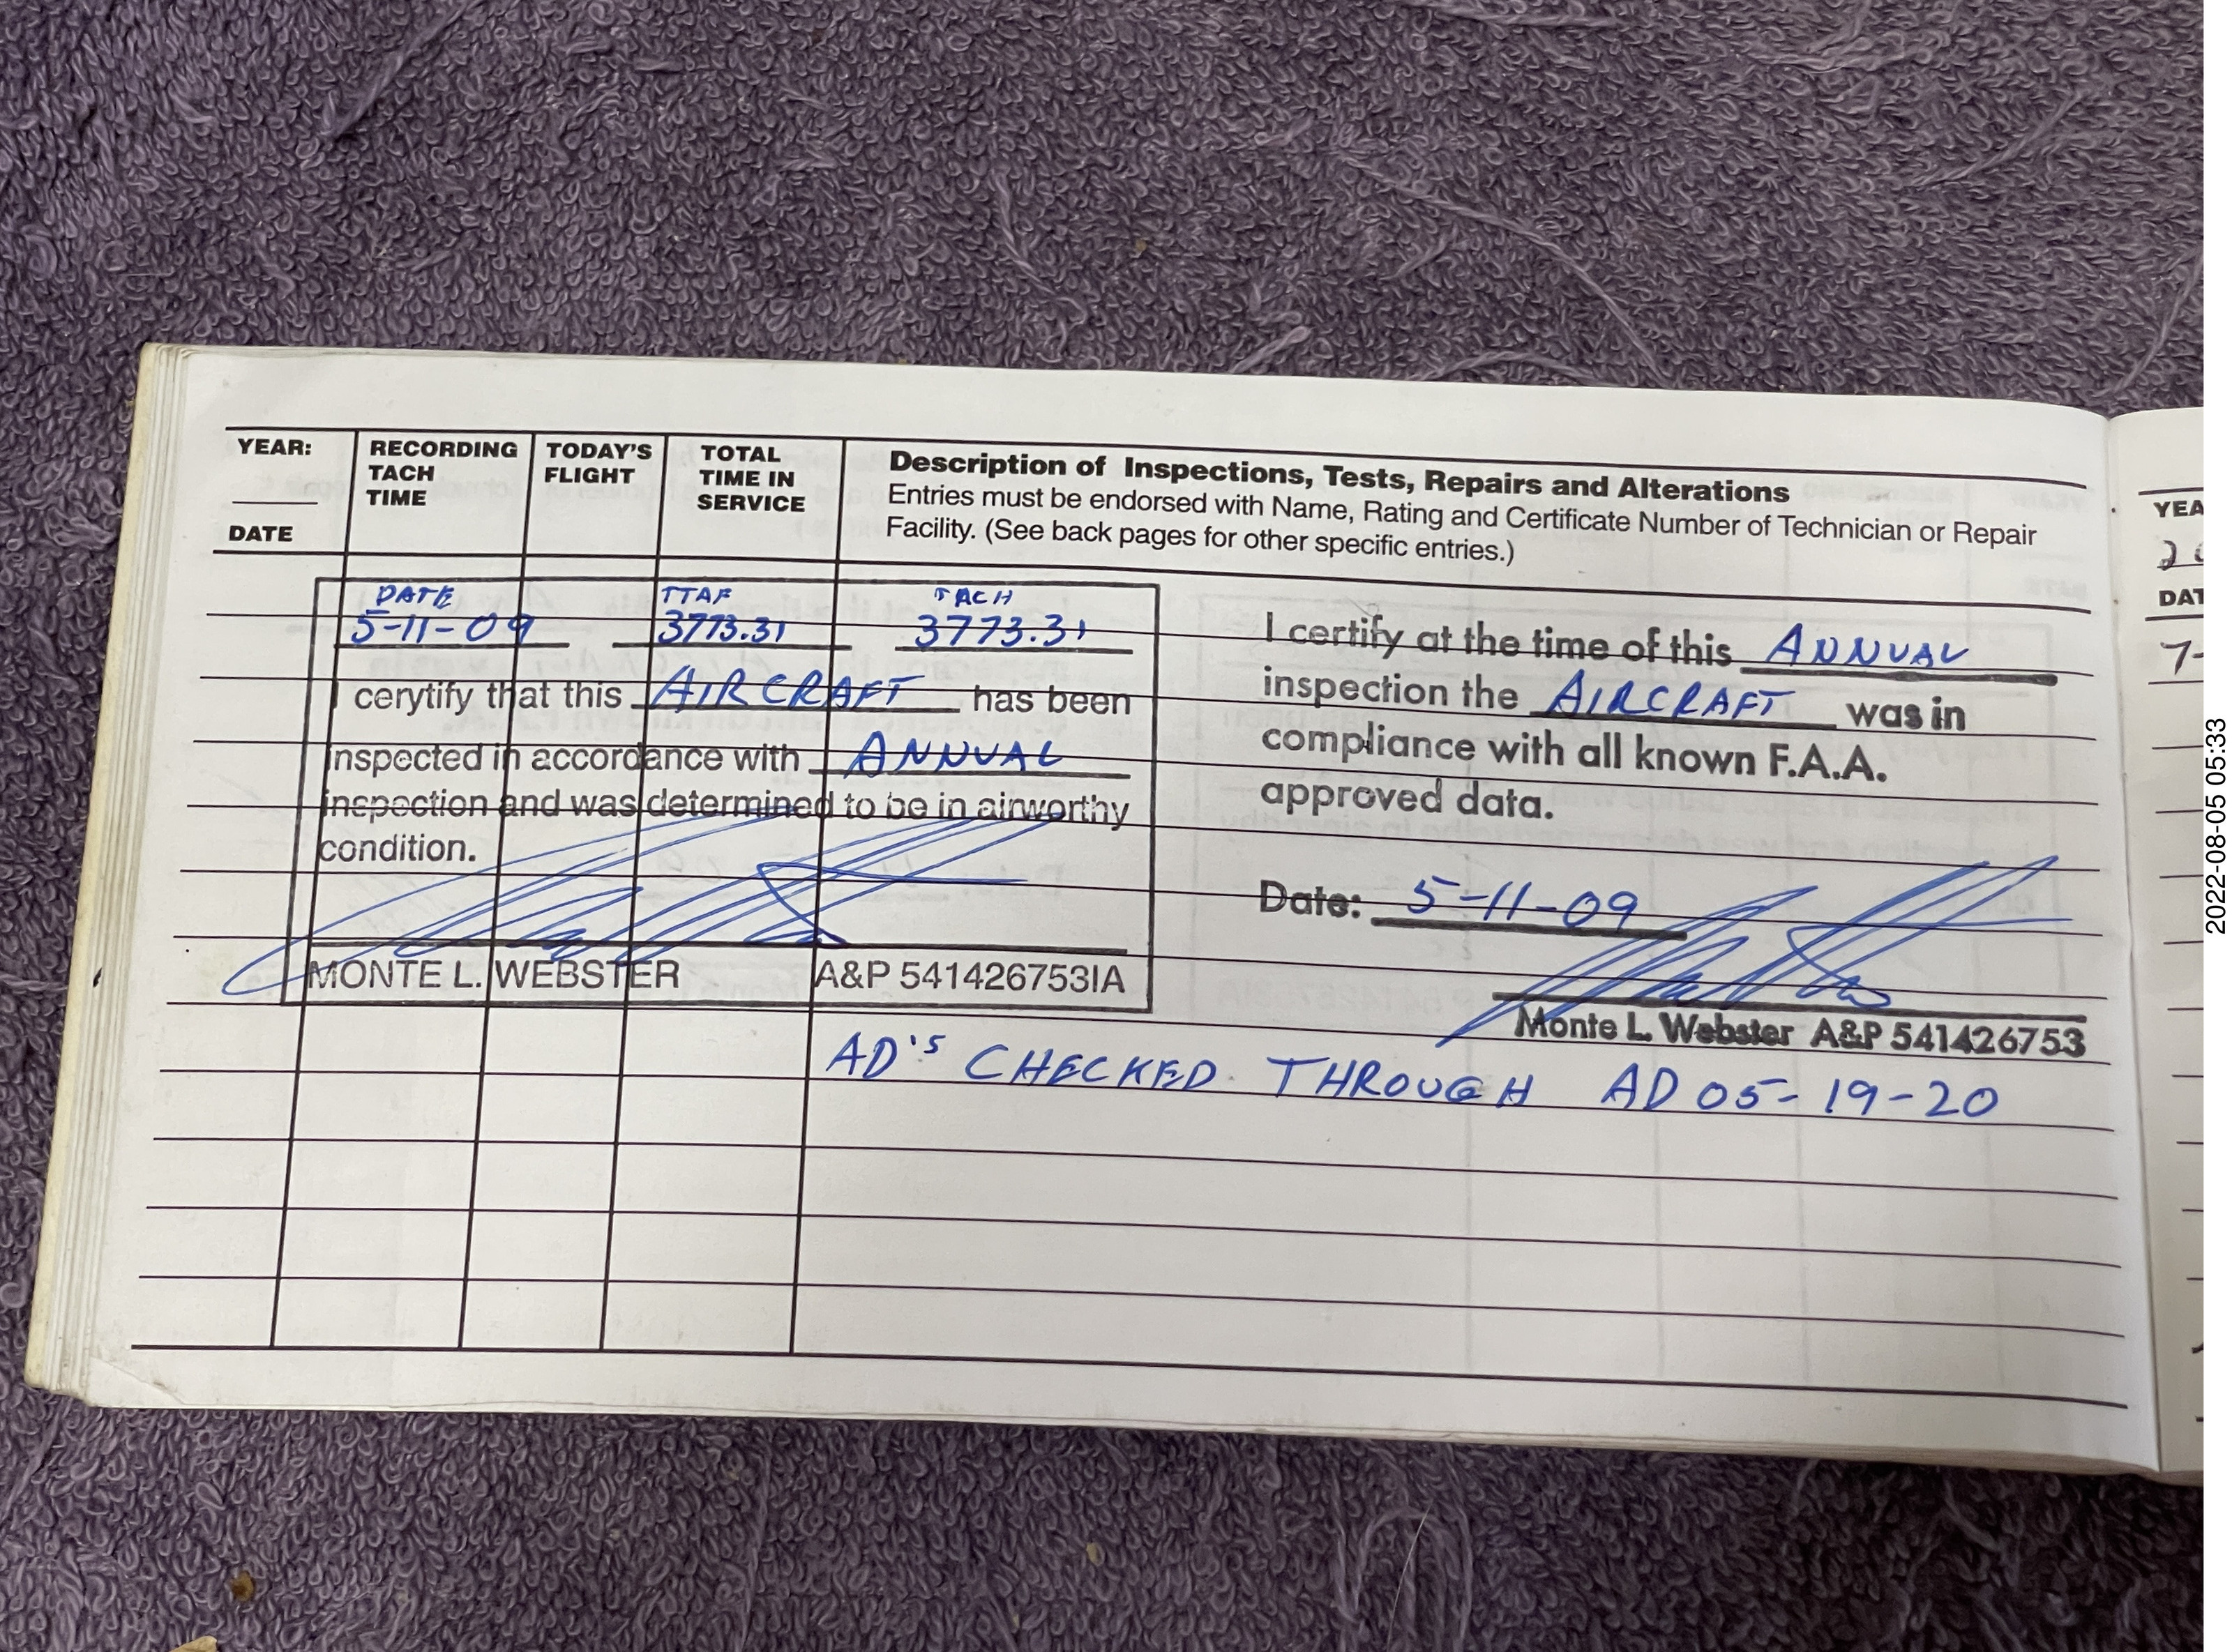 YEAR:
DATE
RECORDING
TACH
TIME
TODAY'S
FLIGHT
TOTAL
TIME IN
SERVICE
Description of Inspections, Tests, Repairs and Alterations
Entries must be endorsed with Name, Rating and Certificate Number of Technician or Repair
Facility. (See back pages for other specific entries.)
DATE TTAF TACH
5-11-09 3773.31 3773.31
I cerytify that this AIRCRAFT has been
inspected in accordance with ANNUAL
inspection and was determined to be in airworthy
condition.
MONTE L. WEBSTER A&P 541426753IA
I certify at the time of this ANNUAL
inspection the AIRCRAFT was in
compliance with all known F.A.A.
approved data.
Date: 5-11-09
Monte L. Webster A&P 541426753
AD'S CHECKED THROUGH AD 05-19-20
YEA
DAT
7-
2022-08-05 05:33